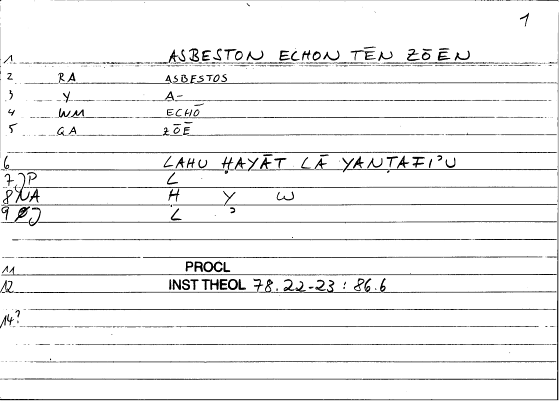 1
1 ASBESTON ECHON TĒN ZŌĒN
2 RA ASBESTOS
3 Y A-
4 WM ECHŌ
5 GA ZŌĒ
6 LAHU ḤAYĀT LĀ YANṬAFI'U
7 JP L
8 NA H Y W
9 J L '
11 PROCL
12 INST THEOL 78.22-23 : 86.6
14?